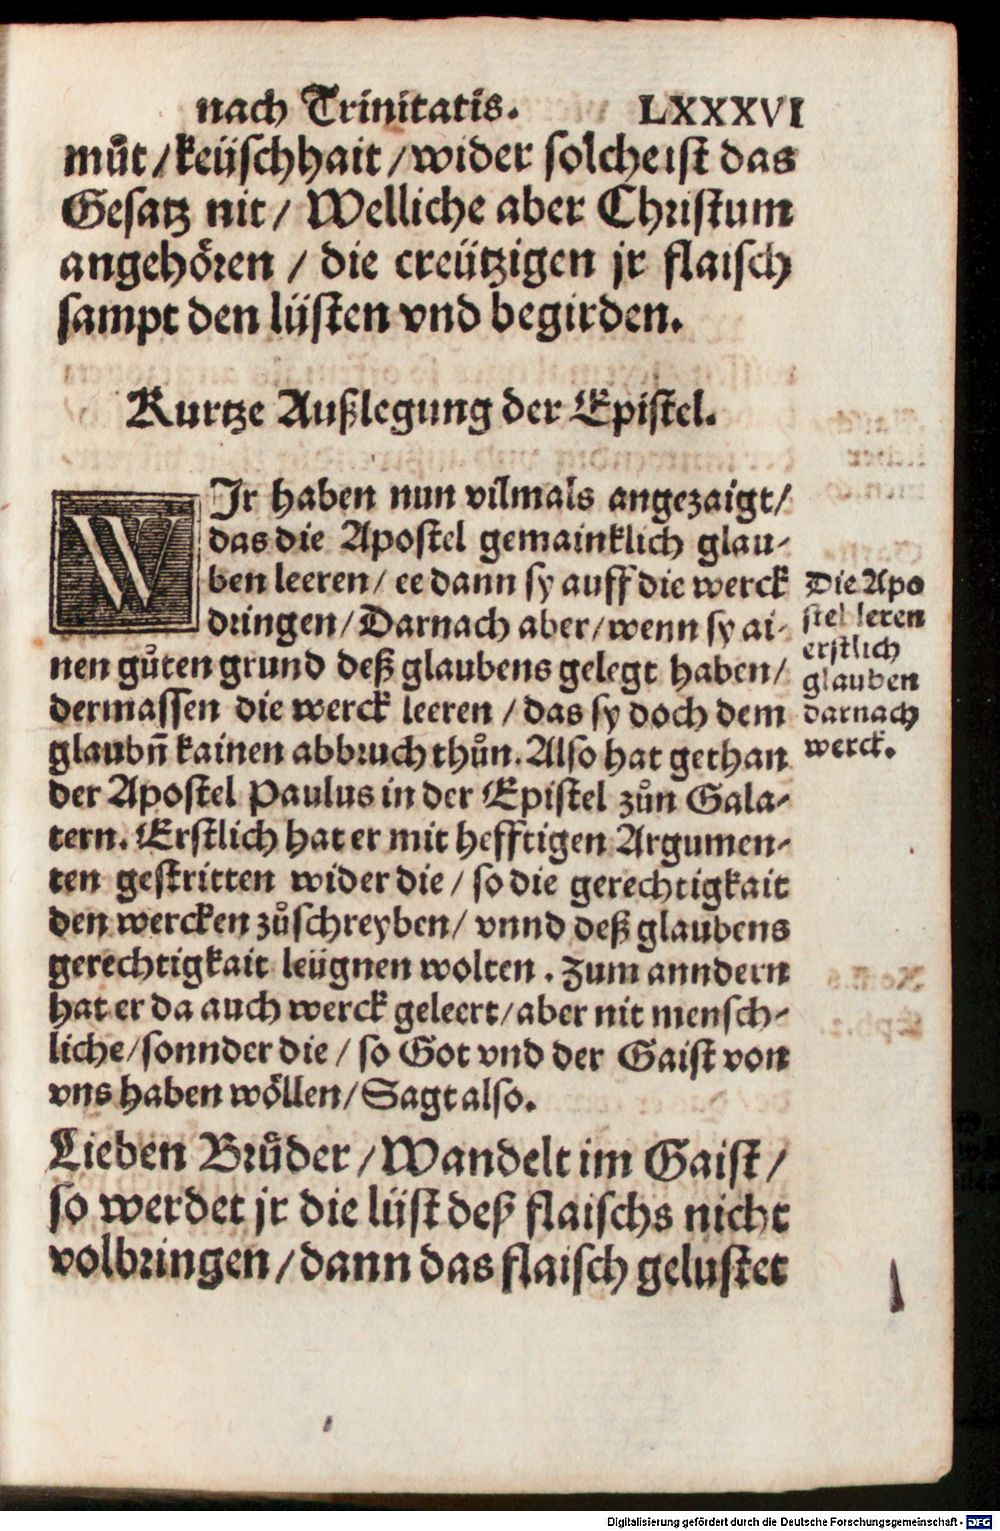 nach Trinitatis. LXXXVI
muͦt/keüschhait/wider solche ist das
Gesatz nit/ Welliche aber Christum
angehoͤren / die creützigen jr flaisch
sampt den lüsten vnd begirden.
Kurtze Außlegung der Epistel.
WJr haben nun vilmals angezaigt/
das die Apostel gemainklich glau-
ben leeren/ ee dann sy auff die werck
dringen/Darnach aber/wenn sy ai-
nen guͦten grund deß glaubens gelegt haben/
dermassen die werck leeren / das sy doch dem
glaubñ kainen abbruch thuͦn. Also hat gethan
der Apostel Paulus in der Epistel zuͦn Gala-
tern. Erstlich hat er mit hefftigen Argumen-
ten gestritten wider die / so die gerechtigkait
den wercken zuͦschreyben/ vnnd deß glaubens
gerechtigkait leügnen wolten. Zum anndern
hat er da auch werck geleert/aber nit mensch-
liche/sonnder die / so Got vnd der Gaist von
vns haben woͤllen/Sagt also.
Lieben Bruͤder /Wandelt im Gaist/
so werdet jr die lüst deß flaischs nicht
volbringen/dann das flaisch gelustet
Die Apo
stel leren
erstlich
glauben
darnach
werck.
Digitalisierung gefördert durch die Deutsche Forschungsgemeinschaft - DFG